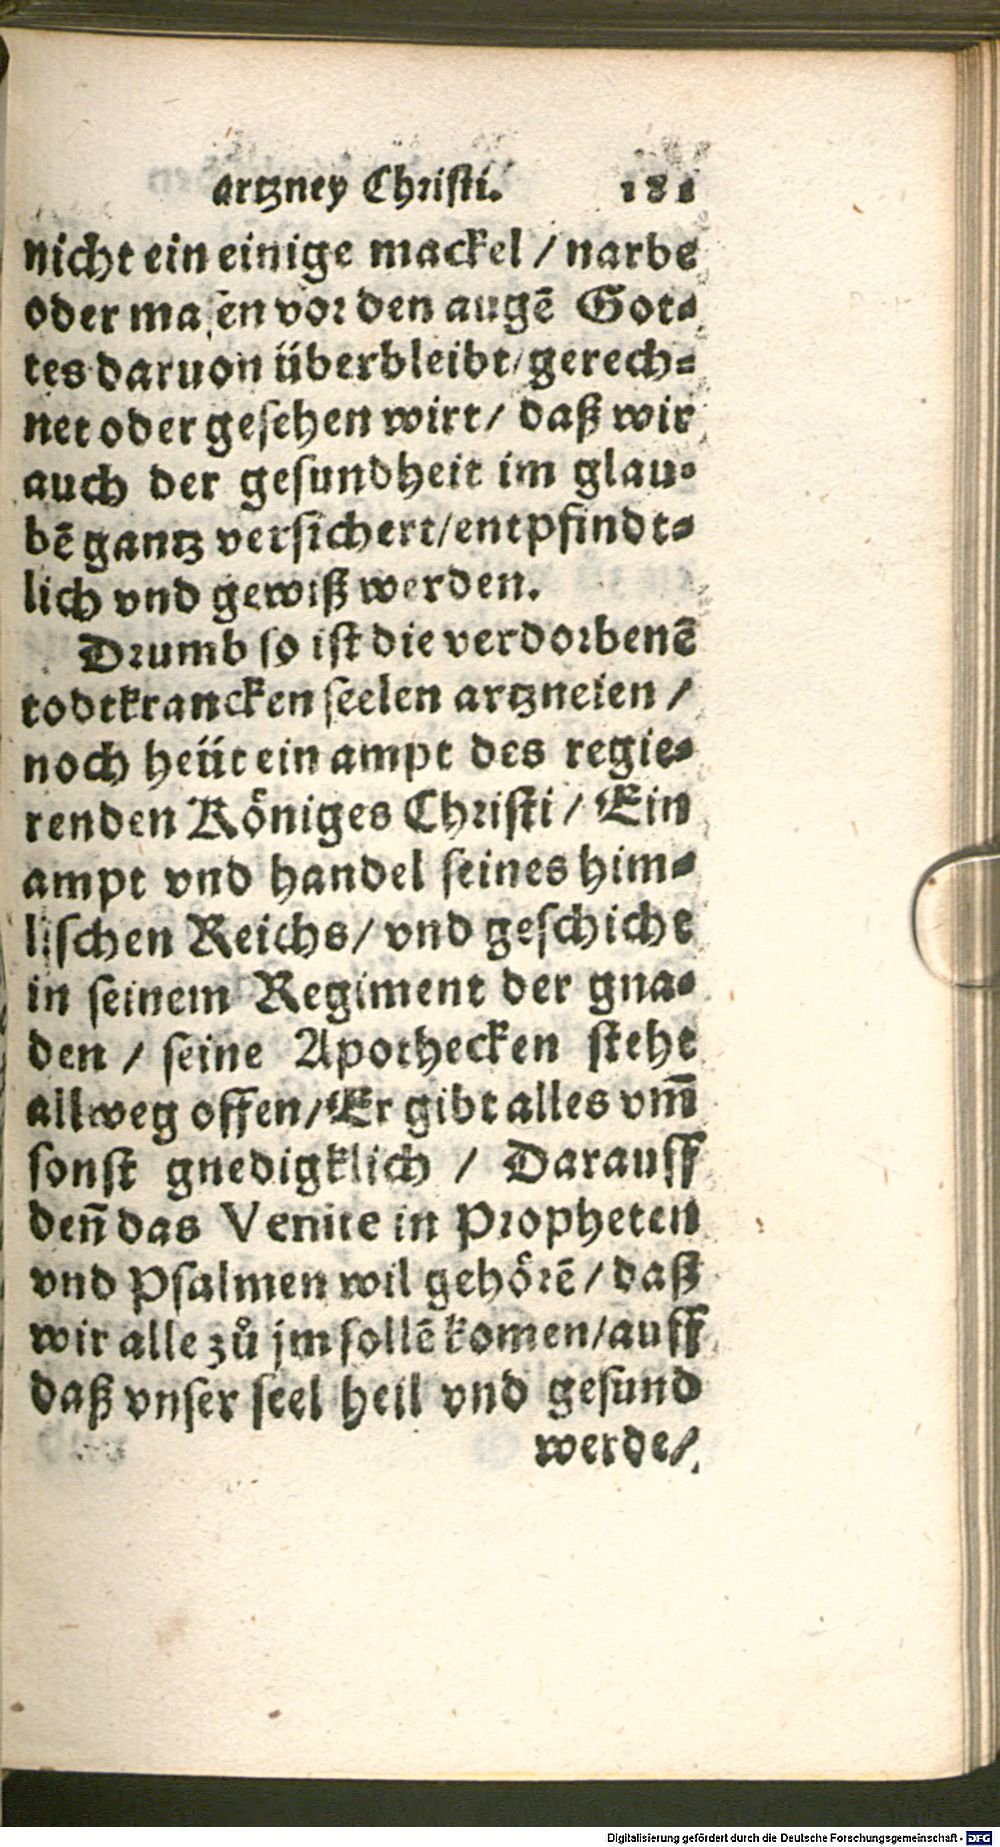 artzney Christi. 181
nicht ein einige mackel / narbe
oder masen vor den augē Got⸗
tes daruon überbleibt / gerech⸗
net oder gesehen wirt / daß wir
auch der gesundheit im glau⸗
bē gantz versichert / entpfindt⸗
lich vnd gewiß werden.
Drumb so ist die verdorbenē
todtkrancken seelen artzneien /
noch heüt ein ampt des regie⸗
renden Königes Christi / Ein
ampt vnd handel seines him⸗
lischen Reichs / vnd geschicht
in seinem Regiment der gna⸗
den / seine Apothecken steht
allweg offen / Er gibt alles vm̄
sonst gnedigklich / Darauff
den̄ das Venite in Propheten
vnd Psalmen wil gehörē / daß
wir alle zů jm sollē komen / auff
daß vnser seel heil vnd gesund
werde /
Digitalisierung gefördert durch die Deutsche Forschungsgemeinschaft - DFG